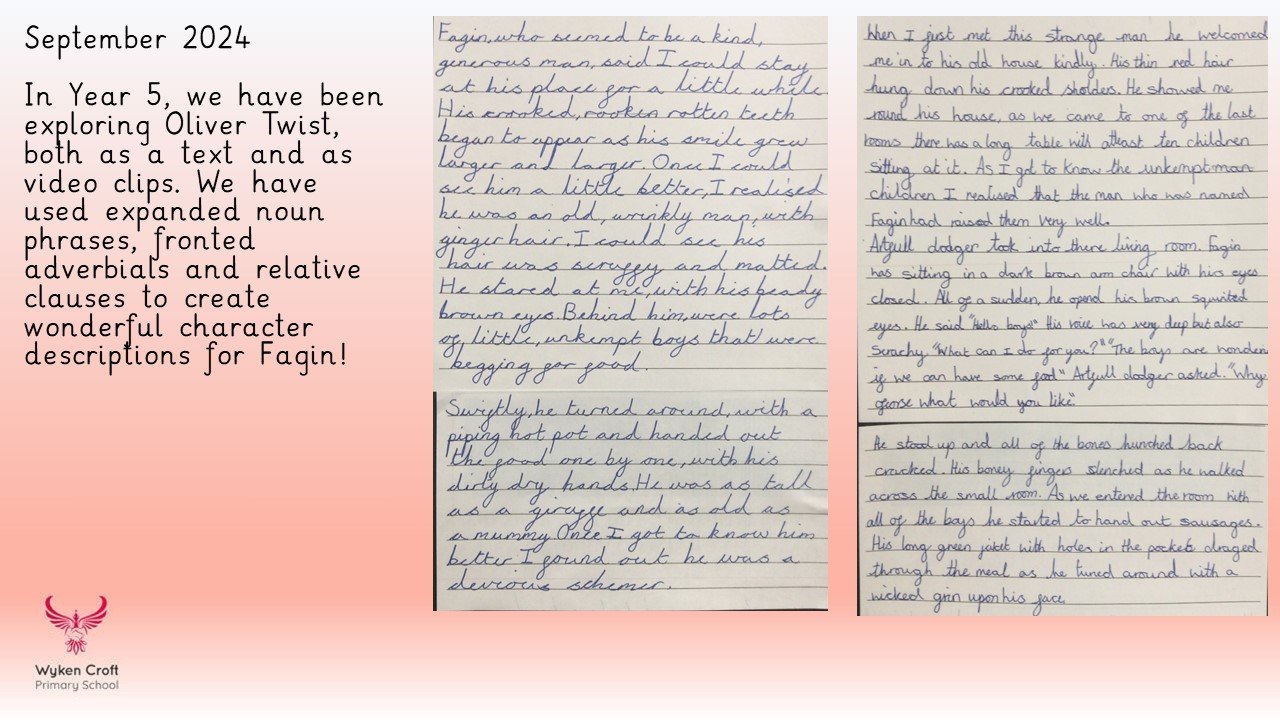 September 2024
In Year 5, we have been
exploring Oliver Twist,
both as a text and as
video clips. We have
used expanded noun
phrases, fronted
adverbials and relative
clauses to create
wonderful character
descriptions for Fagin!
Wyken Croft
Primary School
Fagin, who seemed to be a kind,
generous man, said I could stay
at his place for a little while.
His crooked, rotten teeth
began to appear as his smile grew
larger and larger. Once I could
see him a little better, I realised
he was an old, wrinkly man, with
ginger hair. I could see his
hair was scruffy and matted.
He stared at me, with his beady
brown eyes. Behind him, were lots
of, little, unkempt boys that were
begging for food.
Swiftly, he turned around, with a
piping hot pot and handed out
the food one by one, with his
dirty dry hands. He was as tall
as a giraffe and as old as
a mummy. Once I got to know him
better I found out he was a
devious schemer.
When I first met this strange man he welcomed
me in to his old house kindly. His thin red hair
hung down his crooked sholders. He showed me
round his house, as we came to one of the last
rooms there was a long table with atleast ten children
sitting at it. As I got to know the unkempt man
children I realised that the man who was named
Fagin had raised them very well.
Artfull dodger took into there living room. Fagin
was sitting in a dark brown arm chair with hirs eyes
closed. All of a sudden, he opend his brown squinted
eyes. He said "Hello boys!" His voice was very deep but also
Scrachy "What can I do for you?" "The boys are wonden
if we can have some food" Artfull dodger asked. "Why
of corse what would you like".
He stood up and all of the bones hunched back
cracked. His boney fingers clenched as he walked
across the small room. As we entered the room with
all of the boys he started to hand out sausages.
His long green jakit with holes in the pockets draged
through the meal as he tuned around with a
wicked grin upon his face